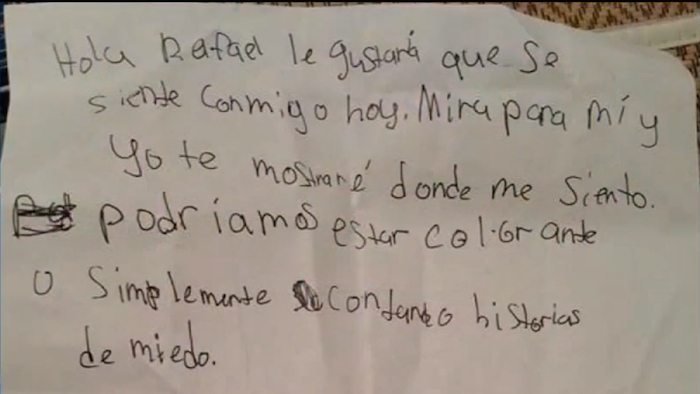 Hola Rafael le gustará que se
siente conmigo hoy. Mira para mí y
yo te mostraré donde me siento.
podríamos estar colorante
o simplemente contando historias
de miedo.